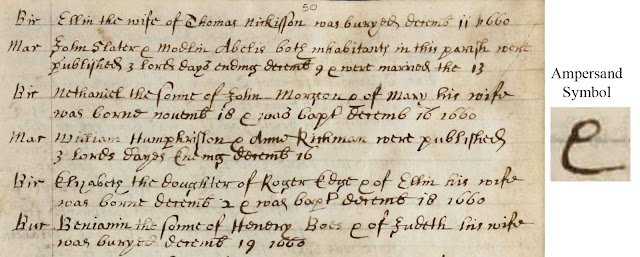 50
Bir Ellin the wife of Thomas Nickisson was buryed decemb 11 1660
Mar John Slater & Modlin Abelis both inhabitants in this parish were
published 3 lords days ending decemb 9 & were married the 13
Bir Nethaniel the sonne of John Morgson & of Mary his wife
was borne novemb 18 & was bapt decemb 16 1660
Mar William Humphrisson & Anne Richman were published
3 lords dayes Ending decemb 16
Bir Elizabeth the doughter of Roger Edge & of Ellin his wife
was borne decemb 2 & was bapt decemb 18 1660
Bur Beniamin the sonne of Hendry Boes & of Judeth his wife
was buryed decemb 19 1660
Ampersand
Symbol
&